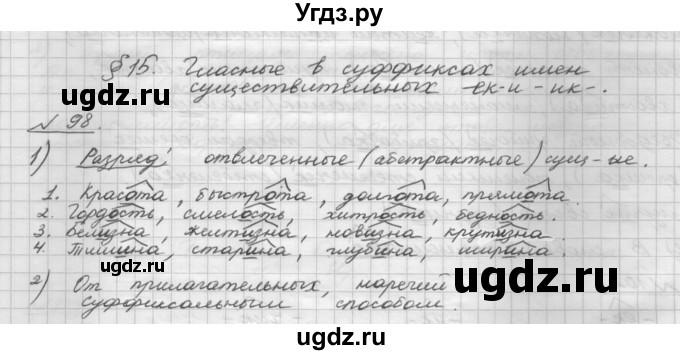 Угдз.ру
§ 15. Гласные в суффиксах имен
существительных -ек- и -ик-.
№ 98.
1) Разряд: отвлеченные (абстрактные) сущ-ые.
1. Красота, быстрота, долгота, прямота.
2. Гордость, смелость, хитрость, бедность.
3. Белизна, желтизна, новизна, крутизна.
4. Тишина, старина, глубина, ширина.
2) От прилагательных, наречий
суффиксальным способом.
ugdz.ru ugdz.ru
ugdz.ru ugdz.ru
ugdz.ru ugdz.ru
ugdz.ru ugdz.ru